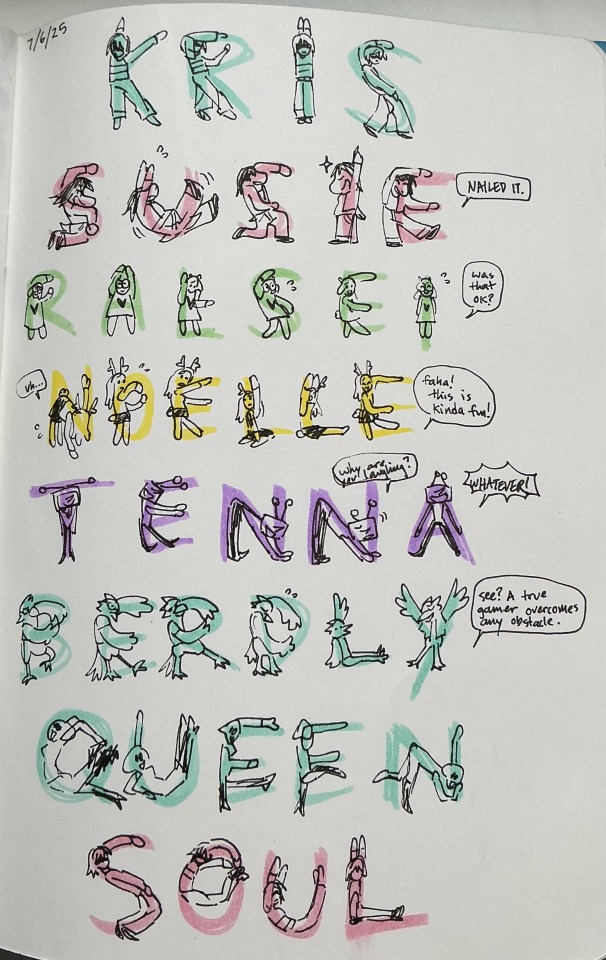 7/6/25
KRIS
SUSIE
NAILED IT.
RALSEI
was
that
OK?
uh...
NOELLE
faha!
this is
kinda fun!
TENNA
why are
you laughing?
WHATEVER!
BERDLY
see? A true
gamer overcomes
any obstacle.
QUEEN
SOUL